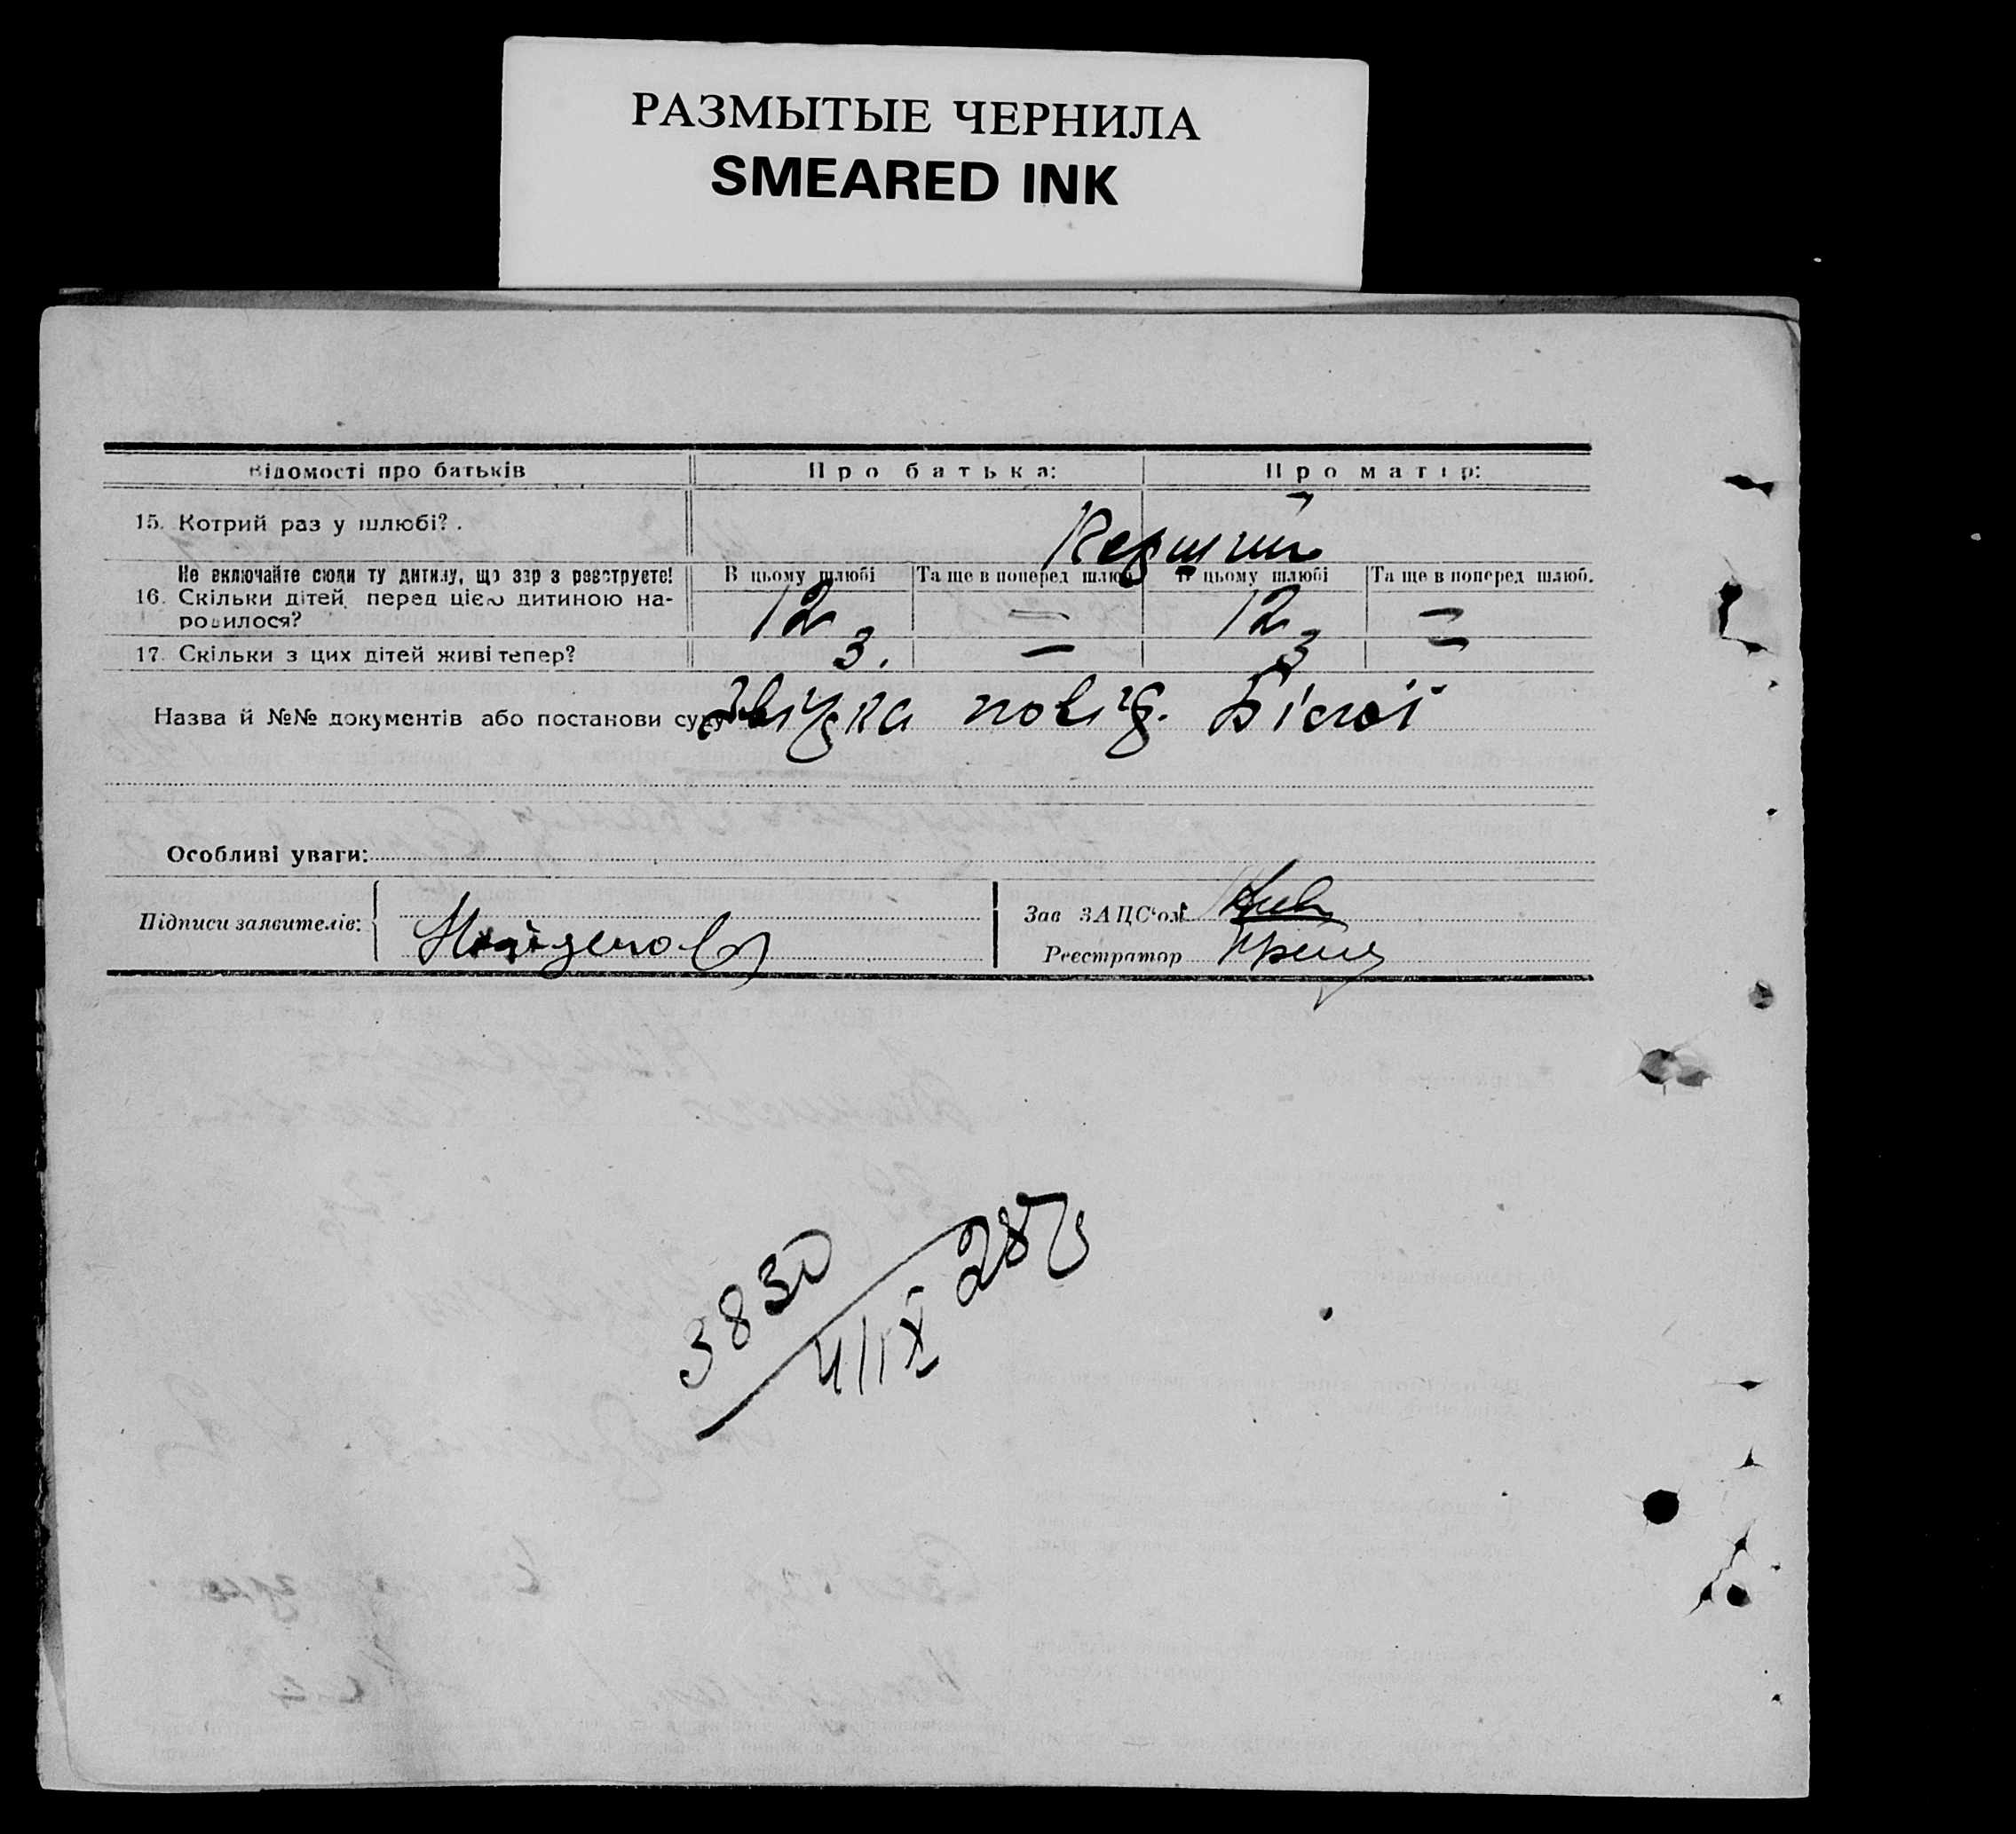 РАЗМЫТЫЕ ЧЕРНИЛА
SMEARED INK
Відомості про батьків Про батька: Про матір:
15. Котрий раз у шлюбі?.
Не включайте сюди ту дитину, що зар з реєструєте! В цьому шлюбі Та ще в поперед шлюб В цьому шлюбі Та ще в поперед шлюб.
16. Скільки дітей перед цією дитиною на-
родилося? 12 — 12 —
17. Скільки з цих дітей живі тепер? 3. — 3 —
Назва й №№ документів або постанови суду Звідка повід.
Особливі уваги:
Підписи заявителів: Зав ЗАЦС'ом
Реєстратор
3830
4/IX 28